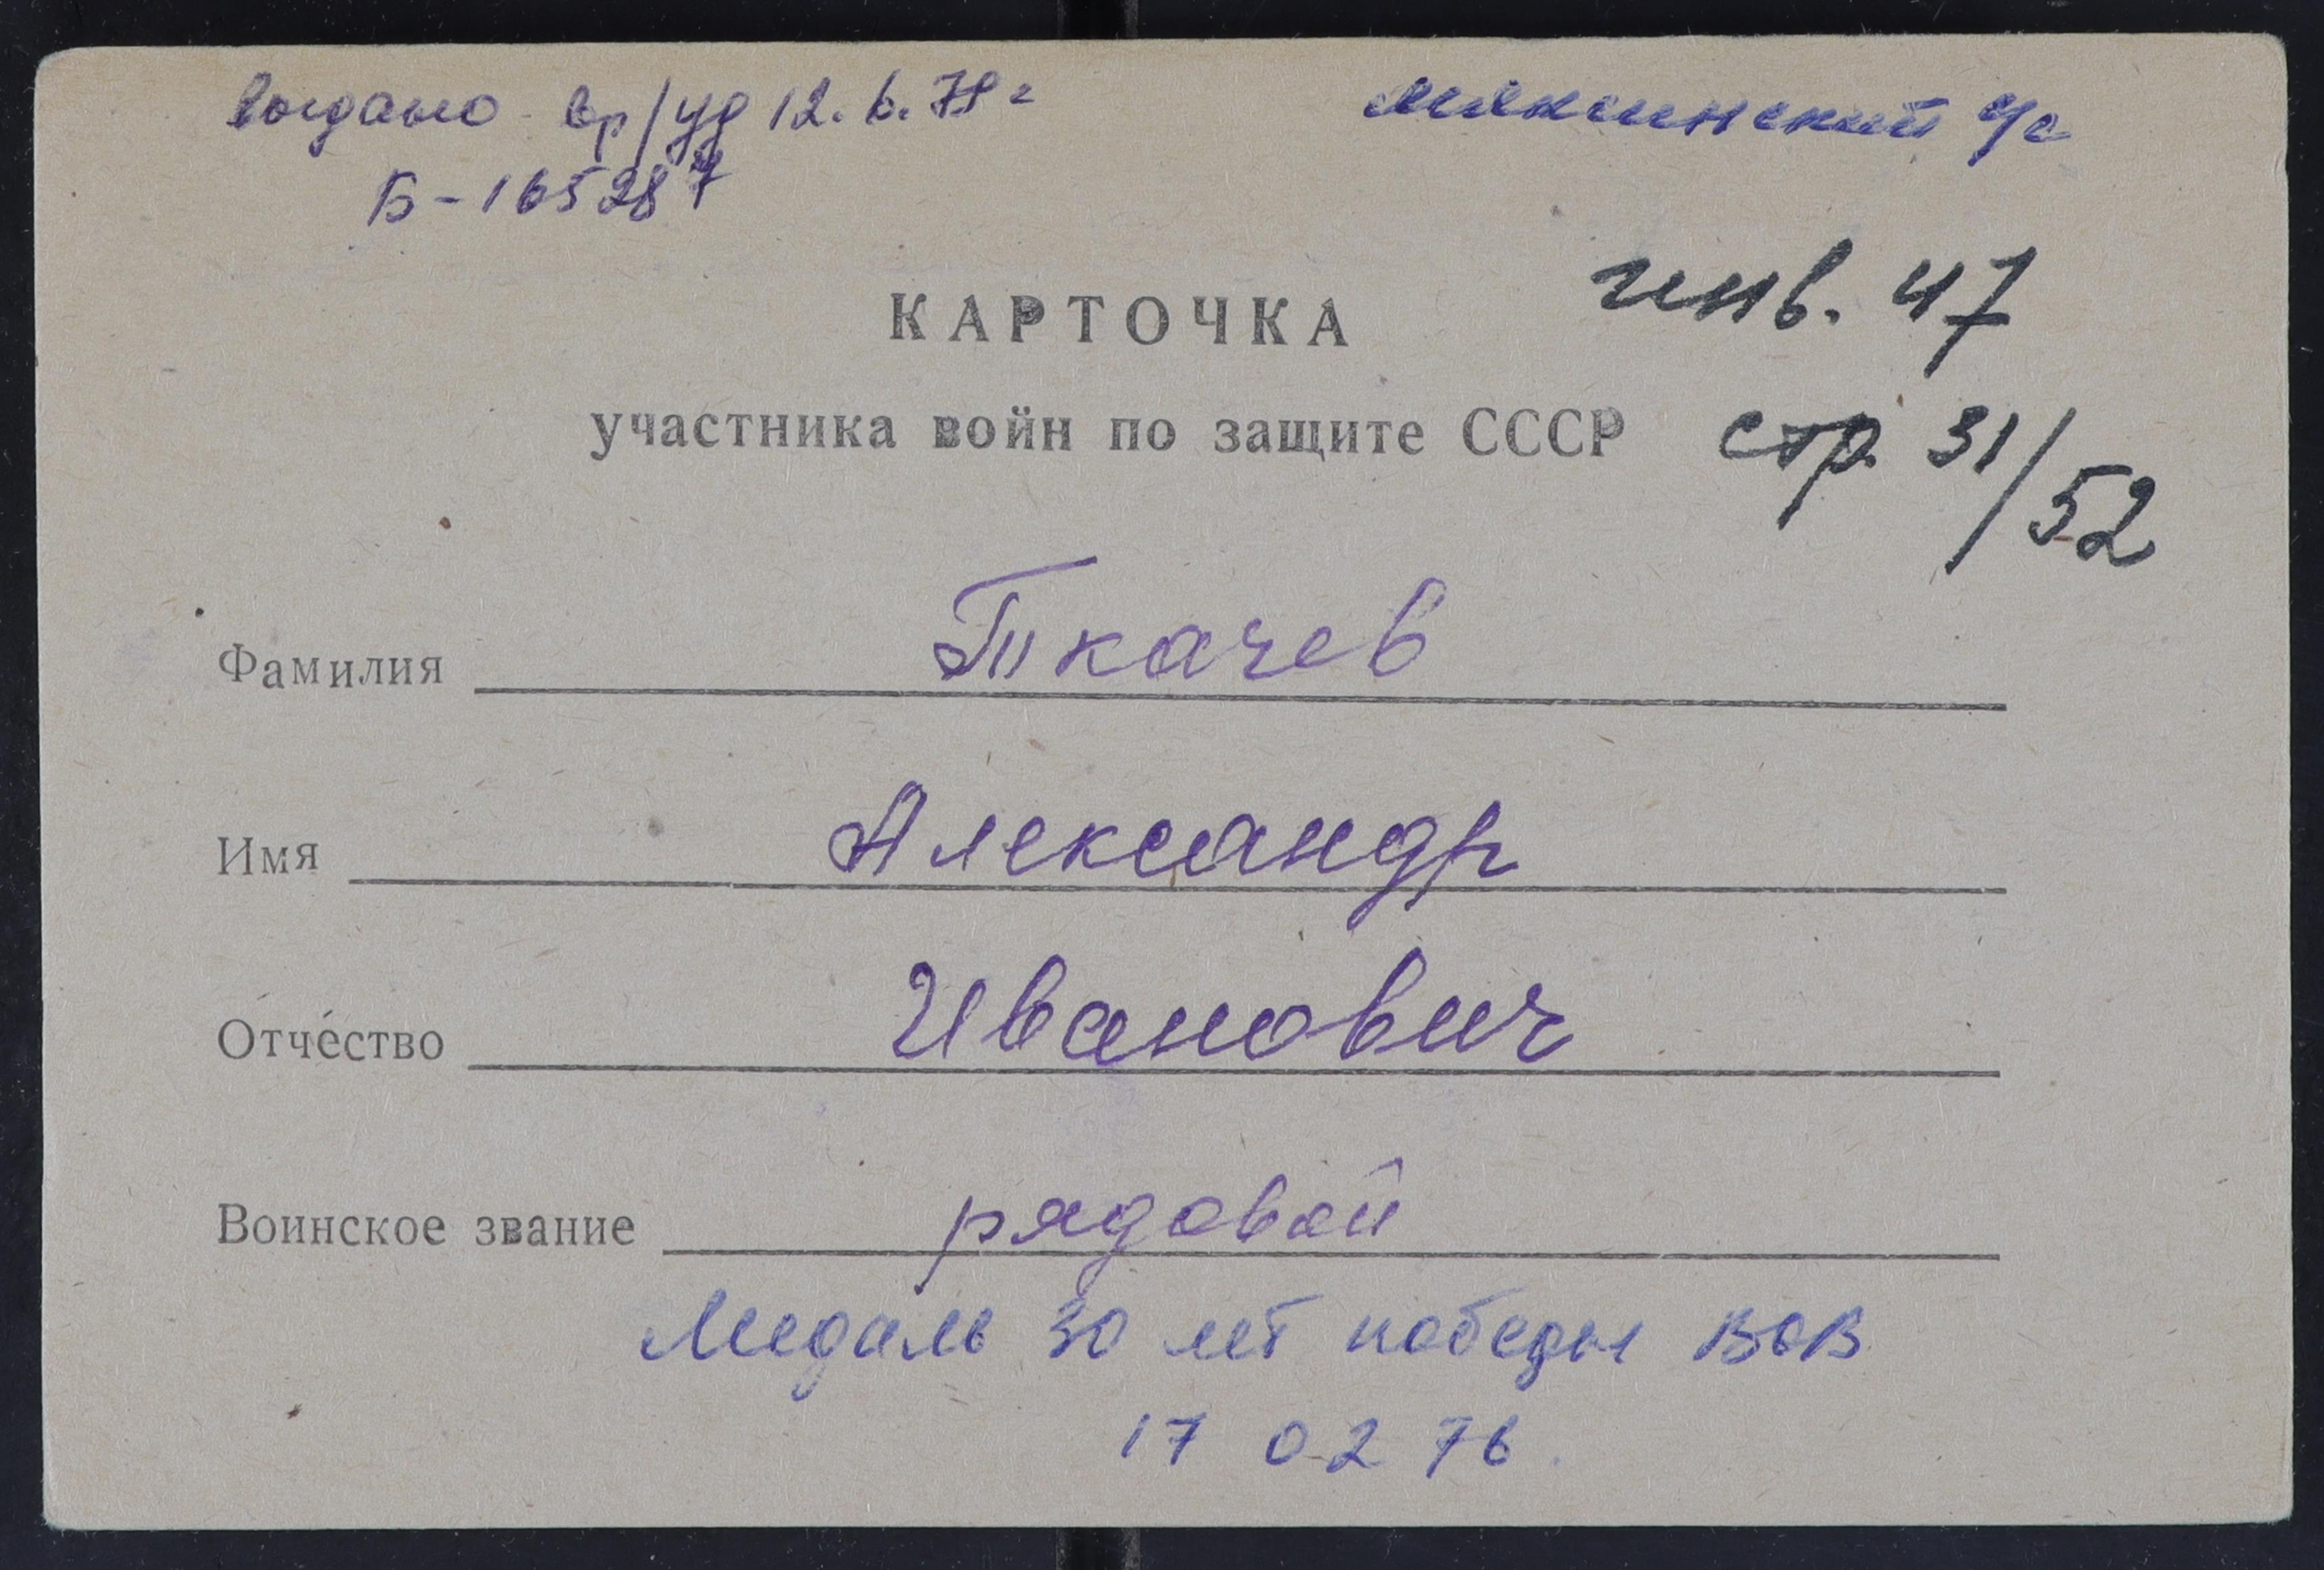 выдано вр/уд 12.6.79 г
Мякшинский с/с
Б-165287
инв. 47
КАРТОЧКА
участника войн по защите СССР
стр. 31/52
Фамилия Ткачев
Имя Александр
Отчество Иванович
Воинское звание рядовой
Медаль 30 лет победы ВОВ
17 02 76.